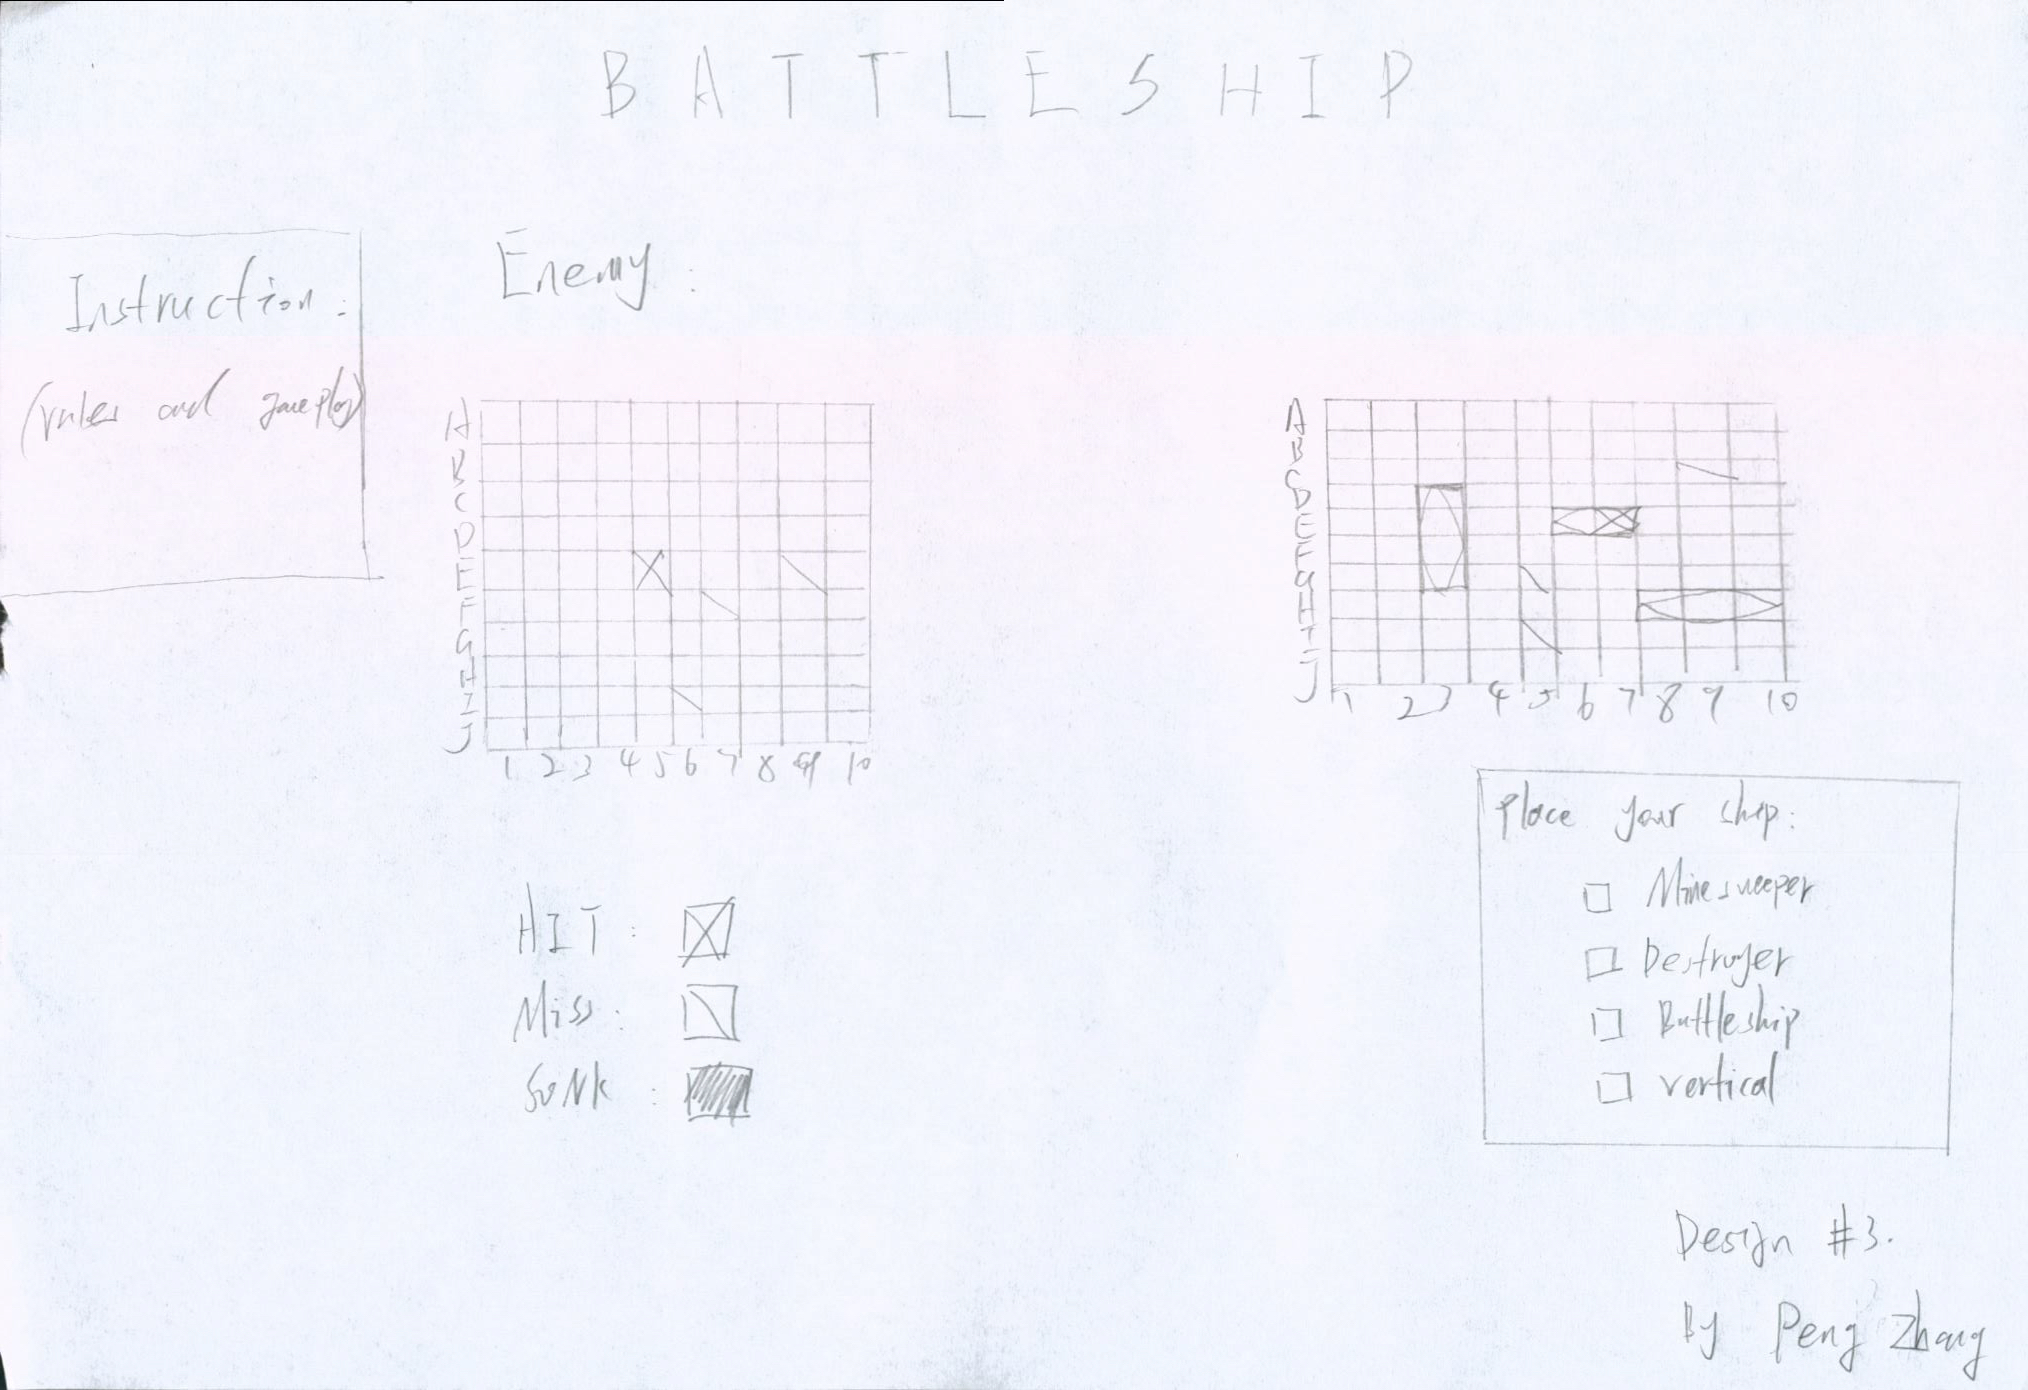 BATTLESHIP
Instruction:
(rules and gameplay)
Enemy:
A
B
C
D
E
F
G
H
I
J
1 2 3 4 5 6 7 8 9 10
A
B
C
D
E
F
G
H
I
J
1 2 3 4 5 6 7 8 9 10
HIT:
Miss:
SUNK:
Place your ship:
Minesweeper
Destroyer
Battleship
vertical
Design #3.
By Peng Zhang